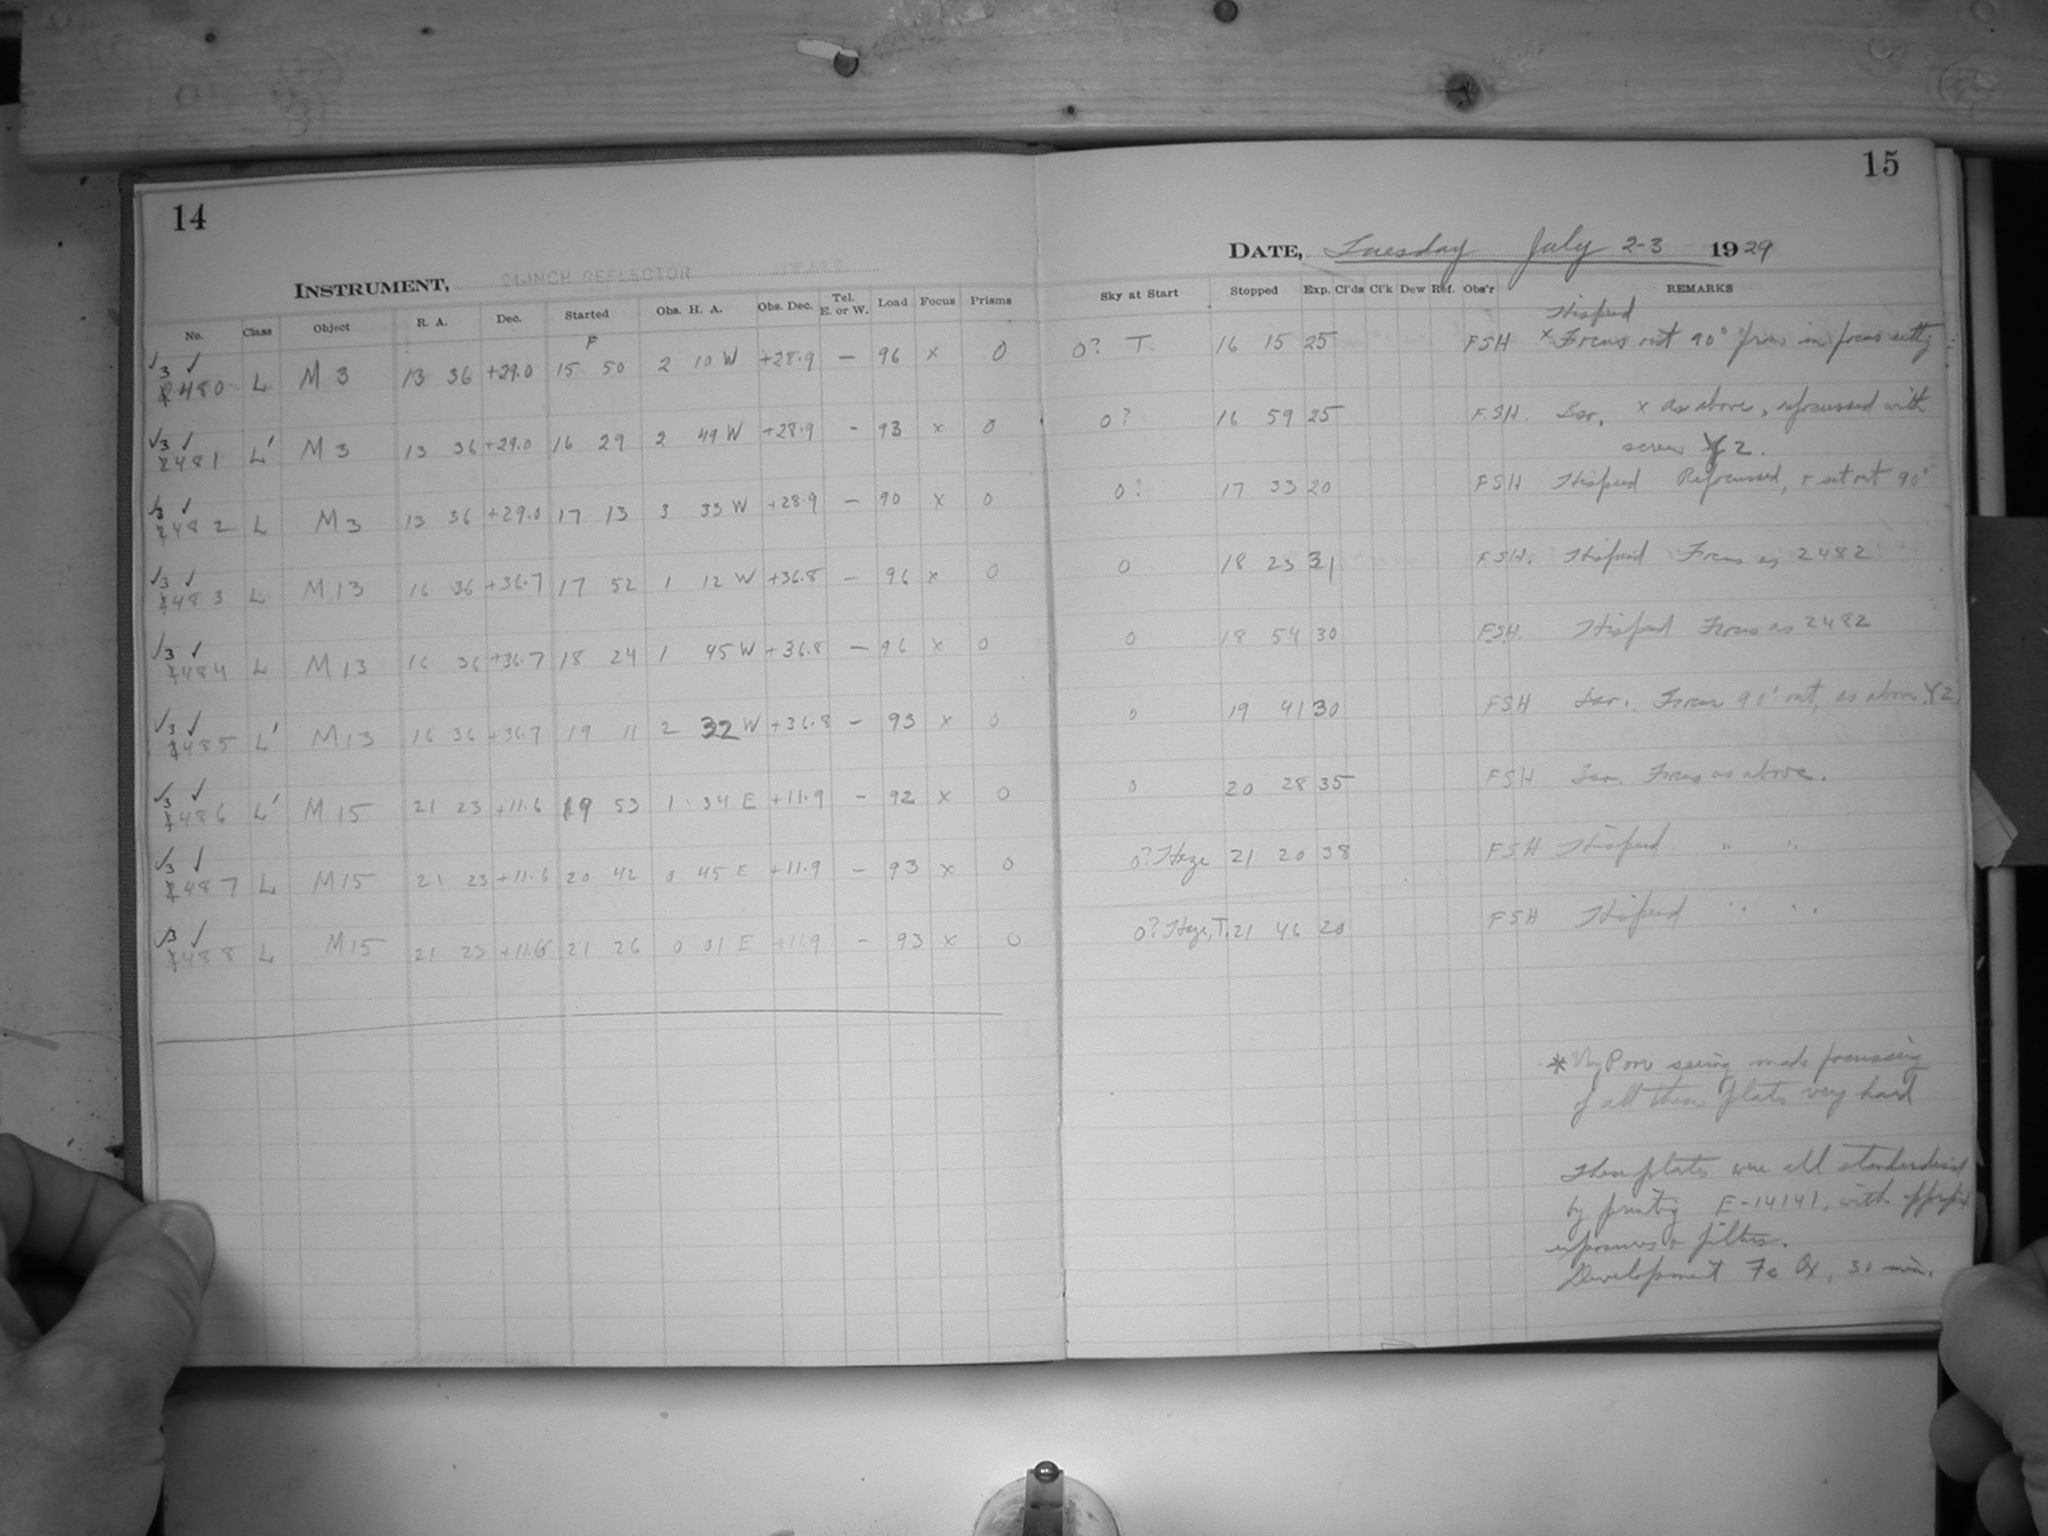 14
INSTRUMENT, 24-INCH REFLECTOR
No. Class Object R. A. Dec. Started Obs. H. A. Obs. Dec. Tel. E. or W. Load Focus Prisms
3480 L M 3 13 36 +29.0 15 50 2 10 W +28.9 – 96 x 0
3481 L' M 3 13 36 +29.0 16 29 2 49 W +28.9 - 93 x 0
3482 L M 3 13 36 +29.0 17 13 3 33 W +28.9 – 90 x 0
3483 L M 13 16 36 +36.7 17 52 1 12 W +36.8 – 96 x 0
3484 L M 13 16 36 +36.7 18 24 1 45 W +36.8 – 96 x 0
3485 L' M 13 16 36 +36.7 19 11 2 32 W +36.8 – 93 x 0
3486 L' M 15 21 23 +11.6 19 53 1 34 E +11.9 – 92 x 0
3487 L M 15 21 23 +11.6 20 42 0 45 E +11.9 – 93 x 0
3488 L M 15 21 23 +11.6 21 26 0 01 E +11.9 – 93 x 0
15
DATE, Tuesday July 2-3 1929
Sky at Start Stopped Exp. Cl'ds Cl'k Dew Ref. Obs'r REMARKS
Hispeed
0? T. 16 15 25 FSH x Focus out 90° from in focus
0? 16 59 25 F.SH. Iso. x As above, refocussed with
screw Y2.
0? 17 33 20 FSH Hispeed Refocussed, + set out 90°
0 18 23 31 FSH. Hispeed Focus as 2482
0 18 54 30 FSH. Hispeed Focus as 2482
0 19 41 30 FSH Iso. Focus 90° out, as above. Y2.
0 20 28 35 FSH Iso. Focus as above.
0? Haze 21 20 38 FSH Hispeed " "
0? Haze, T. 21 46 20 FSH Hispeed " "
* Poor seeing made focussing
of all these plates very hard
These plates were all standardised
by printing E-14141, with
exposures + filters.
Development Fe Ox, 30 min.